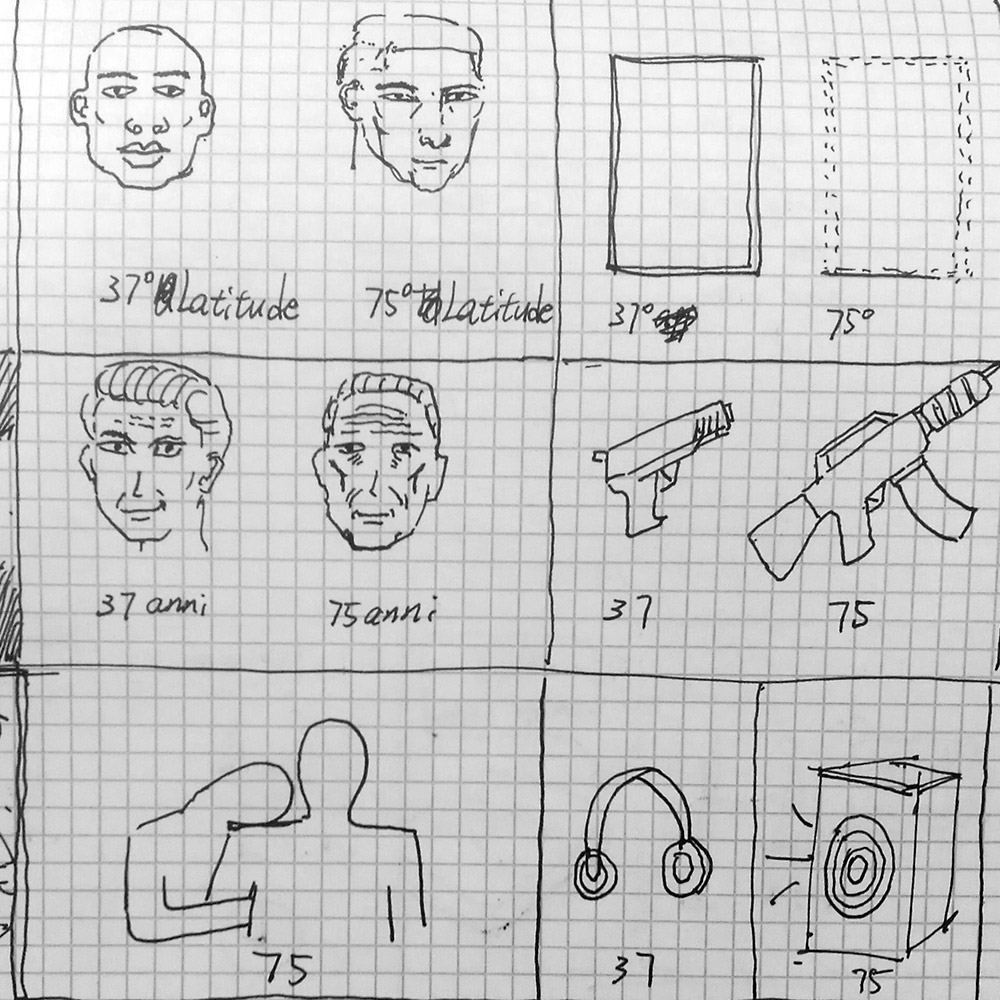 37° Latitude
75° Latitude
37°
75°
37 anni
75 anni
37
75
75
37
75